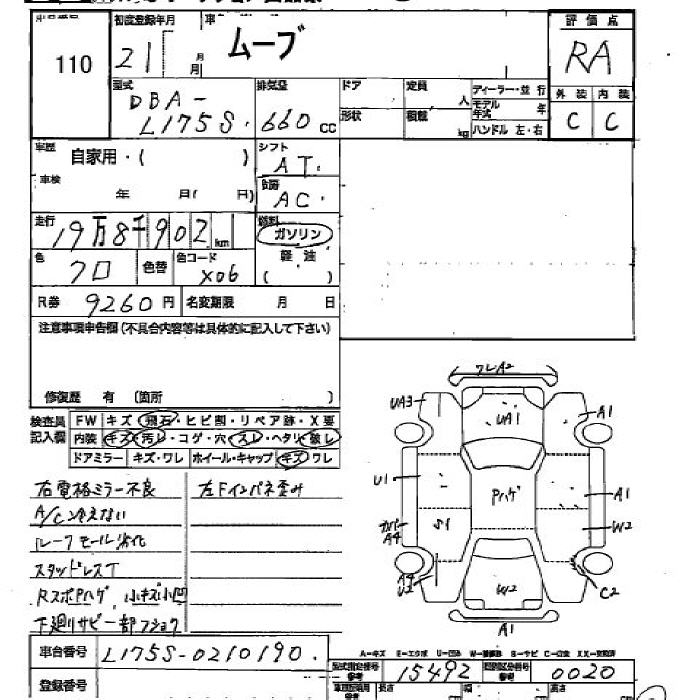 出品番号 初度登録年月 車名 評価点
110 21 月 月 ムーブ RA
型式 排気量 ドア 定員 人 ディーラー・並行
DBA- モデル年式 年 外装 内装
L175S. 660 cc 形状 積載 kg ハンドル 左・右 C C
車歴 自家用・( ) シフト AT.
車検 年 月(日) 冷房 AC.
走行 19万8千902 km 燃料 ガソリン
色 クロ 色替 色コード X06 軽油 ( )
R券 9260円 名変期限 月 日
注意事項申告欄(不具合内容等は具体的に記入して下さい)
修復歴 有 (箇所 )
検査員記入欄 FW キズ・飛石・ヒビ割・リペア跡・X要
内装 キズ・汚レ・コゲ・穴・スレ・ヘタリ・破レ
ドアミラー キズ・ワレ ホイール・キャップ キズ ワレ
右電格ミラー不良 左Fインパネ歪み
A/C冷えない
ルーフモール劣化
スタッドレスT
RスポPハゲ、小キズ小凹
下廻りサビ一部フショク
ワレA2
UA3 UA1 A1
U1 Pハゲ A1
カバーA4 S1 W2
A4 U2 W2 C2
A1
A=キズ E=エクボ U=凹み W=補修跡 S=サビ C=腐食 XX=交換済
車台番号 L175S-0210190. 型式指定番号 参考 15492 類別区分番号 参考 0020
登録番号 長さ CM 幅 CM 高さ